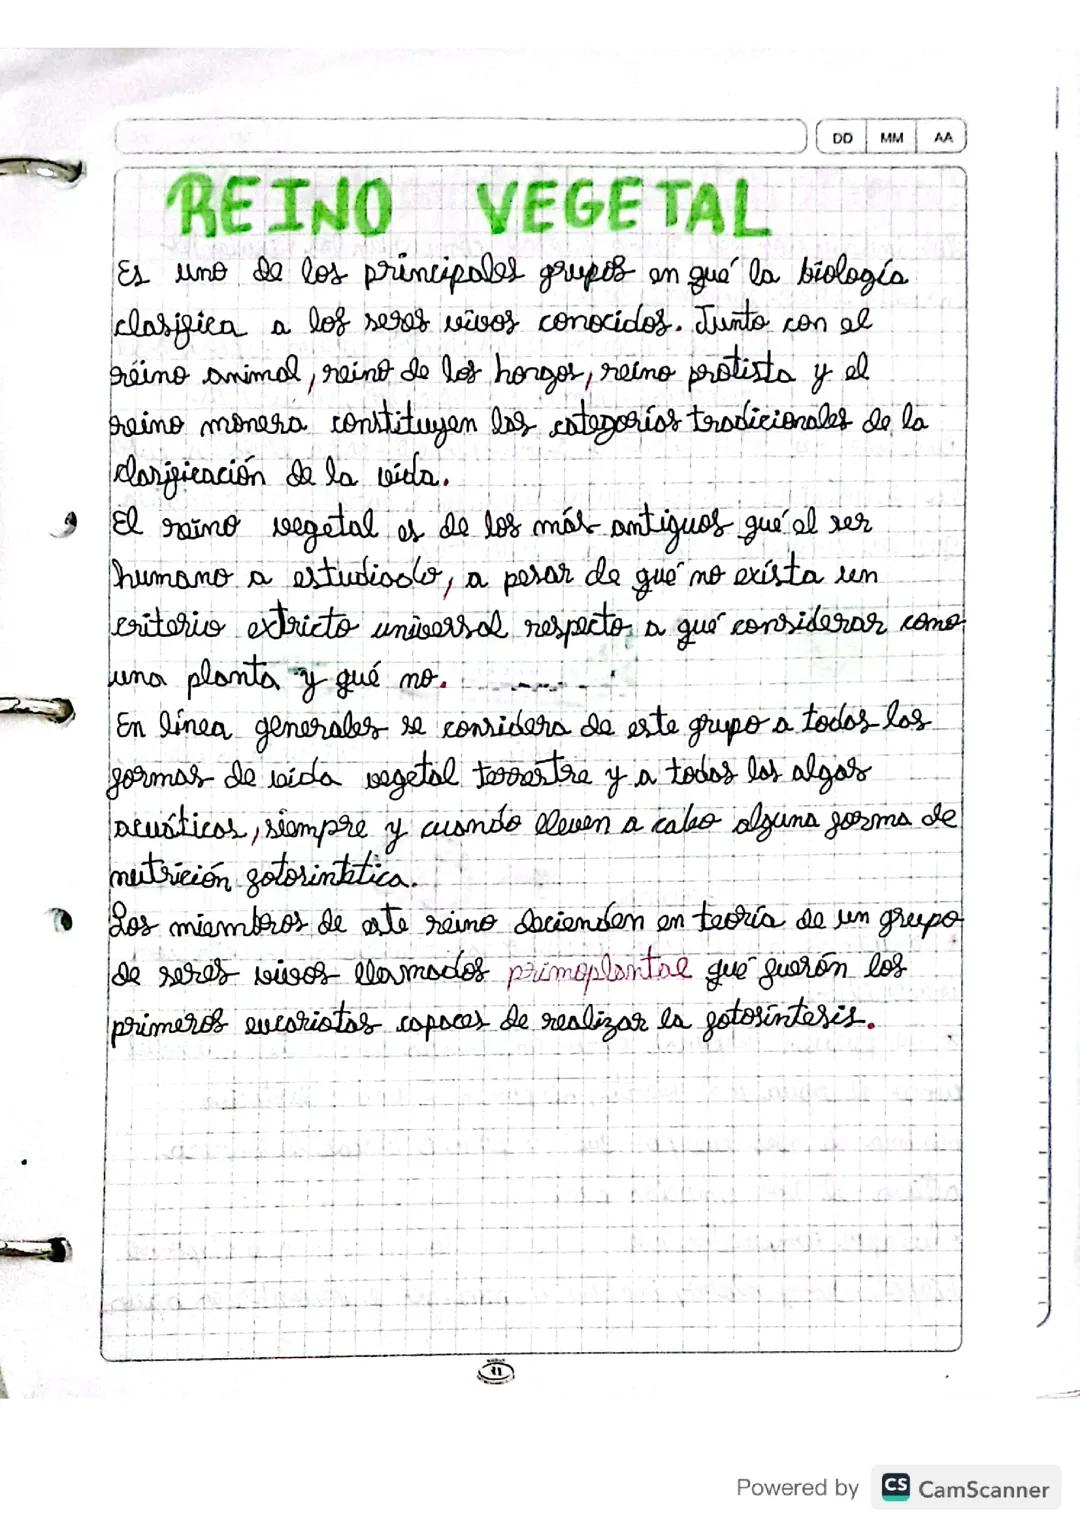 DD MM AA
REINO VEGETAL
Es uno de los principales grupos en qué la biología
clasifica a los seres vivos conocidos. Junto con el
reino animal, reino de los hongos, reino protista y el
reino monera constituyen las categorías tradicionales de la
clasificación de la vida.
El reino vegetal es de los más antiguos qué el ser
humano a estudiado, a pesar de qué no exísta un
criterio extricto universal respecto a qué considerar como
una planta y qué no.
En línea generales se considera de este grupo a todas las
formas de vida vegetal terrestre y a todas las algas
acuáticas, siempre y cuando lleven a cabo alguna forma de
nutrición fotosintética.
Los miembros de este reino decienden en teoría de un grupo
de seres vivos llamados primoplantae qué fuerón los
primeros eucariotas capaces de realizar la fotosíntesis.
Powered by CS CamScanner